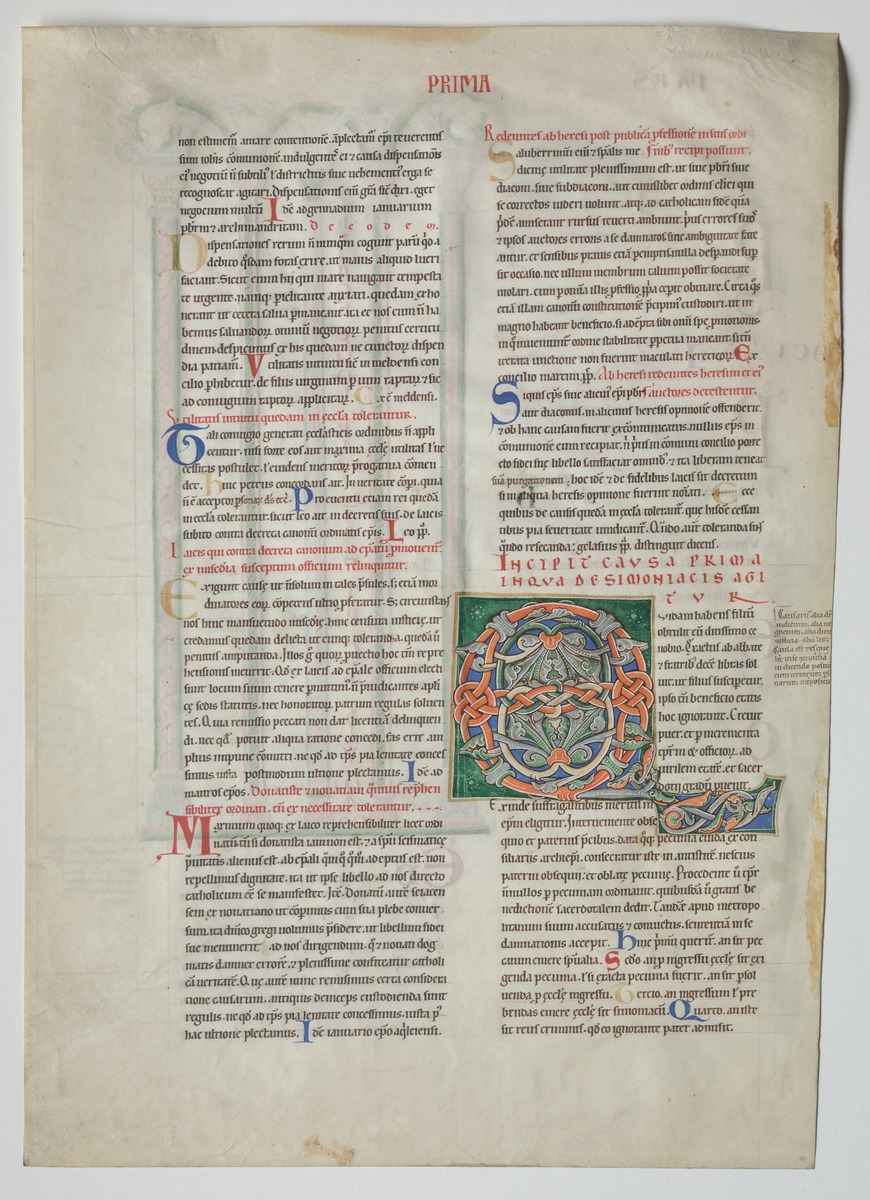 PRIMA
non estimem amare contentione. aplectam epi reverentis
sui communione. indulgentes ei 7 causa dispensationis
recognoscit agitari. Dispensationis
negocium multu Ide ad gennadium ianuarium
pbrm 7 archimandritam. De eodem.
Dispensationes rerum n nunqm cogunt paru qda
debito qsdam foras exire. ut manis aliquid lucri
faciant. Sicut enim hii qui mare navigant tempesta
te urgente. naviq; periclitante anxiati. quedam exho
nerant ut cetera salva permaneant. ita et nos cum n ha
bemus salvandor omnium negotior penitus certitu
dinem. despicimus ex his quedam ne cunctor dispen
dia patiam. Utilitatis intuitu sic in meldensi con
cilio phibetur. de filiis virginum p vim raptar 7 sic
ad coniugium raptor applicitar. Ex c meldensi.
Utilitatis intuitu quedam in eccla tolerantur.
Tali coniugio generati eccliasticis ordinibus n appli
centur. nisi forte eos aut maxima eccle utilitas l ne
cessitas postulet. l evidens meritor progativa comen
det. Hinc petrus concordans ait. In veritate coperi. quia
n e acceptor psonar ds etc. Pro eventu etiam rei queda
in eccla tolerantur. sicut leo ait in decretis suis. de laicis
subito contra decreta canonu ordinatis epis. Leo pp.
Laicis qui contra decreta canonum ad epatu pmoventur
ex misedia susceptum officium relinquitur.
Exigunt cause ut n solum in tales psules. s; etia in or
dinatores eor copetens ultio pferatur. S; circumstas
nos hinc mansuetudo misedie. hinc censura iusticie. ut
credamus quedam delicta utcunq; toleranda. queda v
penitus amputanda. Illos g quor pvectio hoc tm repre
hensionis incurrit. Qd ex laicis ad epale officium electi
sunt locum suum tenere pmittim. n piudicantes apli
ce sedis statutis. nec honorator patrum regulas solven
tes. Quia remissio peccati non dat licentia delinquen
di. nec qd potuit aliqua ratione concedi. fas erit am
plius impune comitti. ne qd ad tps pia lenitate conces
simus iusta postmodum ultione plectamus. Ide ad
mauros epos. Donatiste 7 novatiani quamvis rephen
sibiliter ordinati. tn ex necessitate tolerantur.
Maximum quoq; ex laico reprehensibiliter licet ordi
natu tn si donatista iam non est. 7 a spu scismatice
pravitatis alienus est. ab epali quam quoq; modo adeptus est. non
repellimus dignitate. ita ut ipse libello ad nos directo
catholicum ee se manifestet. Ite. Donatu aute
sem ex novatiano ut coperimus cum sua plebe conver
sum. ita dnico gregi volumus psidere. ut libellum fidei
sue meminerit ad nos dirigendum. q 7 novati dog
matis damnet errore. 7 plenissime confiteatur catholi
ca veritate. Que aute nunc remisimus certa considera
tione causarum. antiquis deinceps custodienda sunt
regulis. ne qd ad tps pia lenitate concessimus. iusta p
hac ultione plectamus. Ide ianuario epo aqleiensi.
Redeuntes ab heresi post publica pfessione in suis ordi
Saluberrimu eni 7 spalis me nib recipi possunt.
dicine utilitate plenissimum est. ut sive pbri sive
diaconi. sive subdiaconi. aut cuiuslibet ordinis clerici qui
se correctos videri volunt. atq; ad catholicam fide qua
pde amiserant rursus reverti ambiunt. pus errores suos
7 ipsos auctores erroris a se damnatos sine ambiguitate fate
antur. ut sensibus pravis etia peremptis nulla despandi sup
sit occasio. nec ullum membrum talium possit societate
violari. cum p omnia illis pfessio ppria ceperit obviare. Circa qs
etia illam canonu constitutione pcipim custodiri. ut in
magno habeant beneficio. si adepta sibi omni spe pmotionis.
in q inveniuntur ordine stabilitate perpetua maneant. si tn
iterata tinctione non fuerint maculati hereticor. Ex
concilio martini pp. Ab heresi redeuntes heresim et ei
Siquis eps sive alicuius epi pbr auctores detestentur.
aut diaconus. in alicuius heresis opinione offenderit.
7 ob hanc causam fuerit excomunicatus. nullus eps in
comunione eum recipiat. n pus in comuni concilio porre
cto fidei sue libello satisfaciat omnib. 7 ita liberam teneat
sua purgationem. hoc ide 7 de fidelibus laicis sit decretum
si in aliqua heresis opinione fuerint noiati. Ecce
quibus de causis queda in eccla tolerant. que hisde cessan
tibus pia severitate vindicant. Quando aut toleranda sint
qndo resecanda. gelasius pp. distinguit dicens.
INCIPIT CAUSA PRIMA
IN QUA DE SIMONIACIS AGI
TUR.
Quidam habens filiu
obtulit eu ditissimo ce
nobio. Exactus ab abbate
7 fratrib dece libras sol
vit. ut filius susciperetur.
ipso tn beneficio etatis
hoc ignorante. Crevit
puer. et p incrementa
tpr 7 officior. ad
virilem etate. et sacer
dotii gradu pvenit.
Exinde suffragantibus meritis in
epm eligitur. Interveniente obse
quio et paternis pcibus. data qq; pecunia cuida ex con
siliariis archiepi. consecratur iste in antistite. nescius
paterni obsequii. et oblate pecunie. Procedente v tpr
nnullos p pecuniam ordinavit. quibusda v gratis be
nedictione sacerdotalem dedit. Tande apud metropo
litanum suum accusatus 7 convictus. sententia in se
damnationis accepit. Hinc primu querit. an sit pec
catum emere spiritualia. Scdo. an p ingressu eccle sit exi
genda pecunia. l si exacta pecunia fuerit. an sit psol
venda p eccle ingressu. Tercio. an ingressum l pre
bendas emere eccle sit simoniacu. Quarto. an iste
sit reus criminis. qd eo ignorante pater admisit.